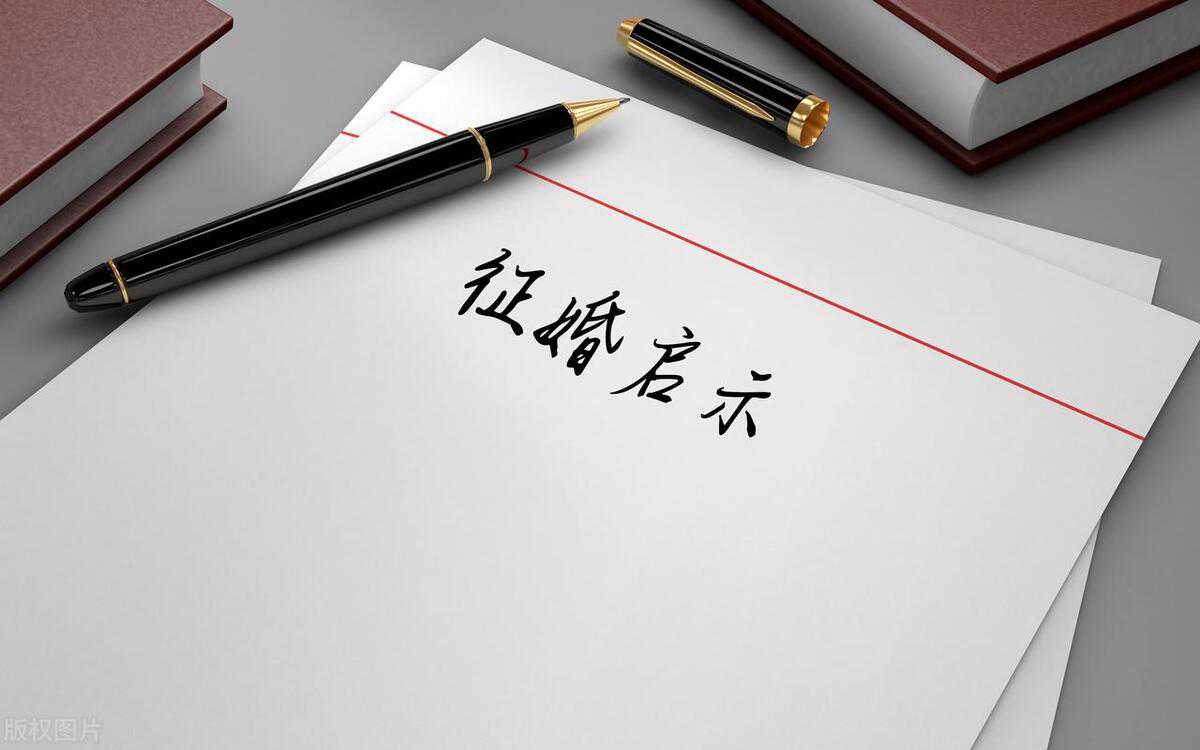 征婚启示
版权图片